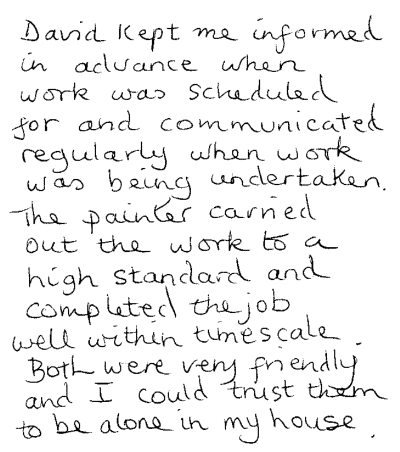 David kept me informed
in advance when
work was scheduled
for and communicated
regularly when work
was being undertaken.
The painter carried
out the work to a
high standard and
completed the job
well within timescale.
Both were very friendly
and I could trust them
to be alone in my house.